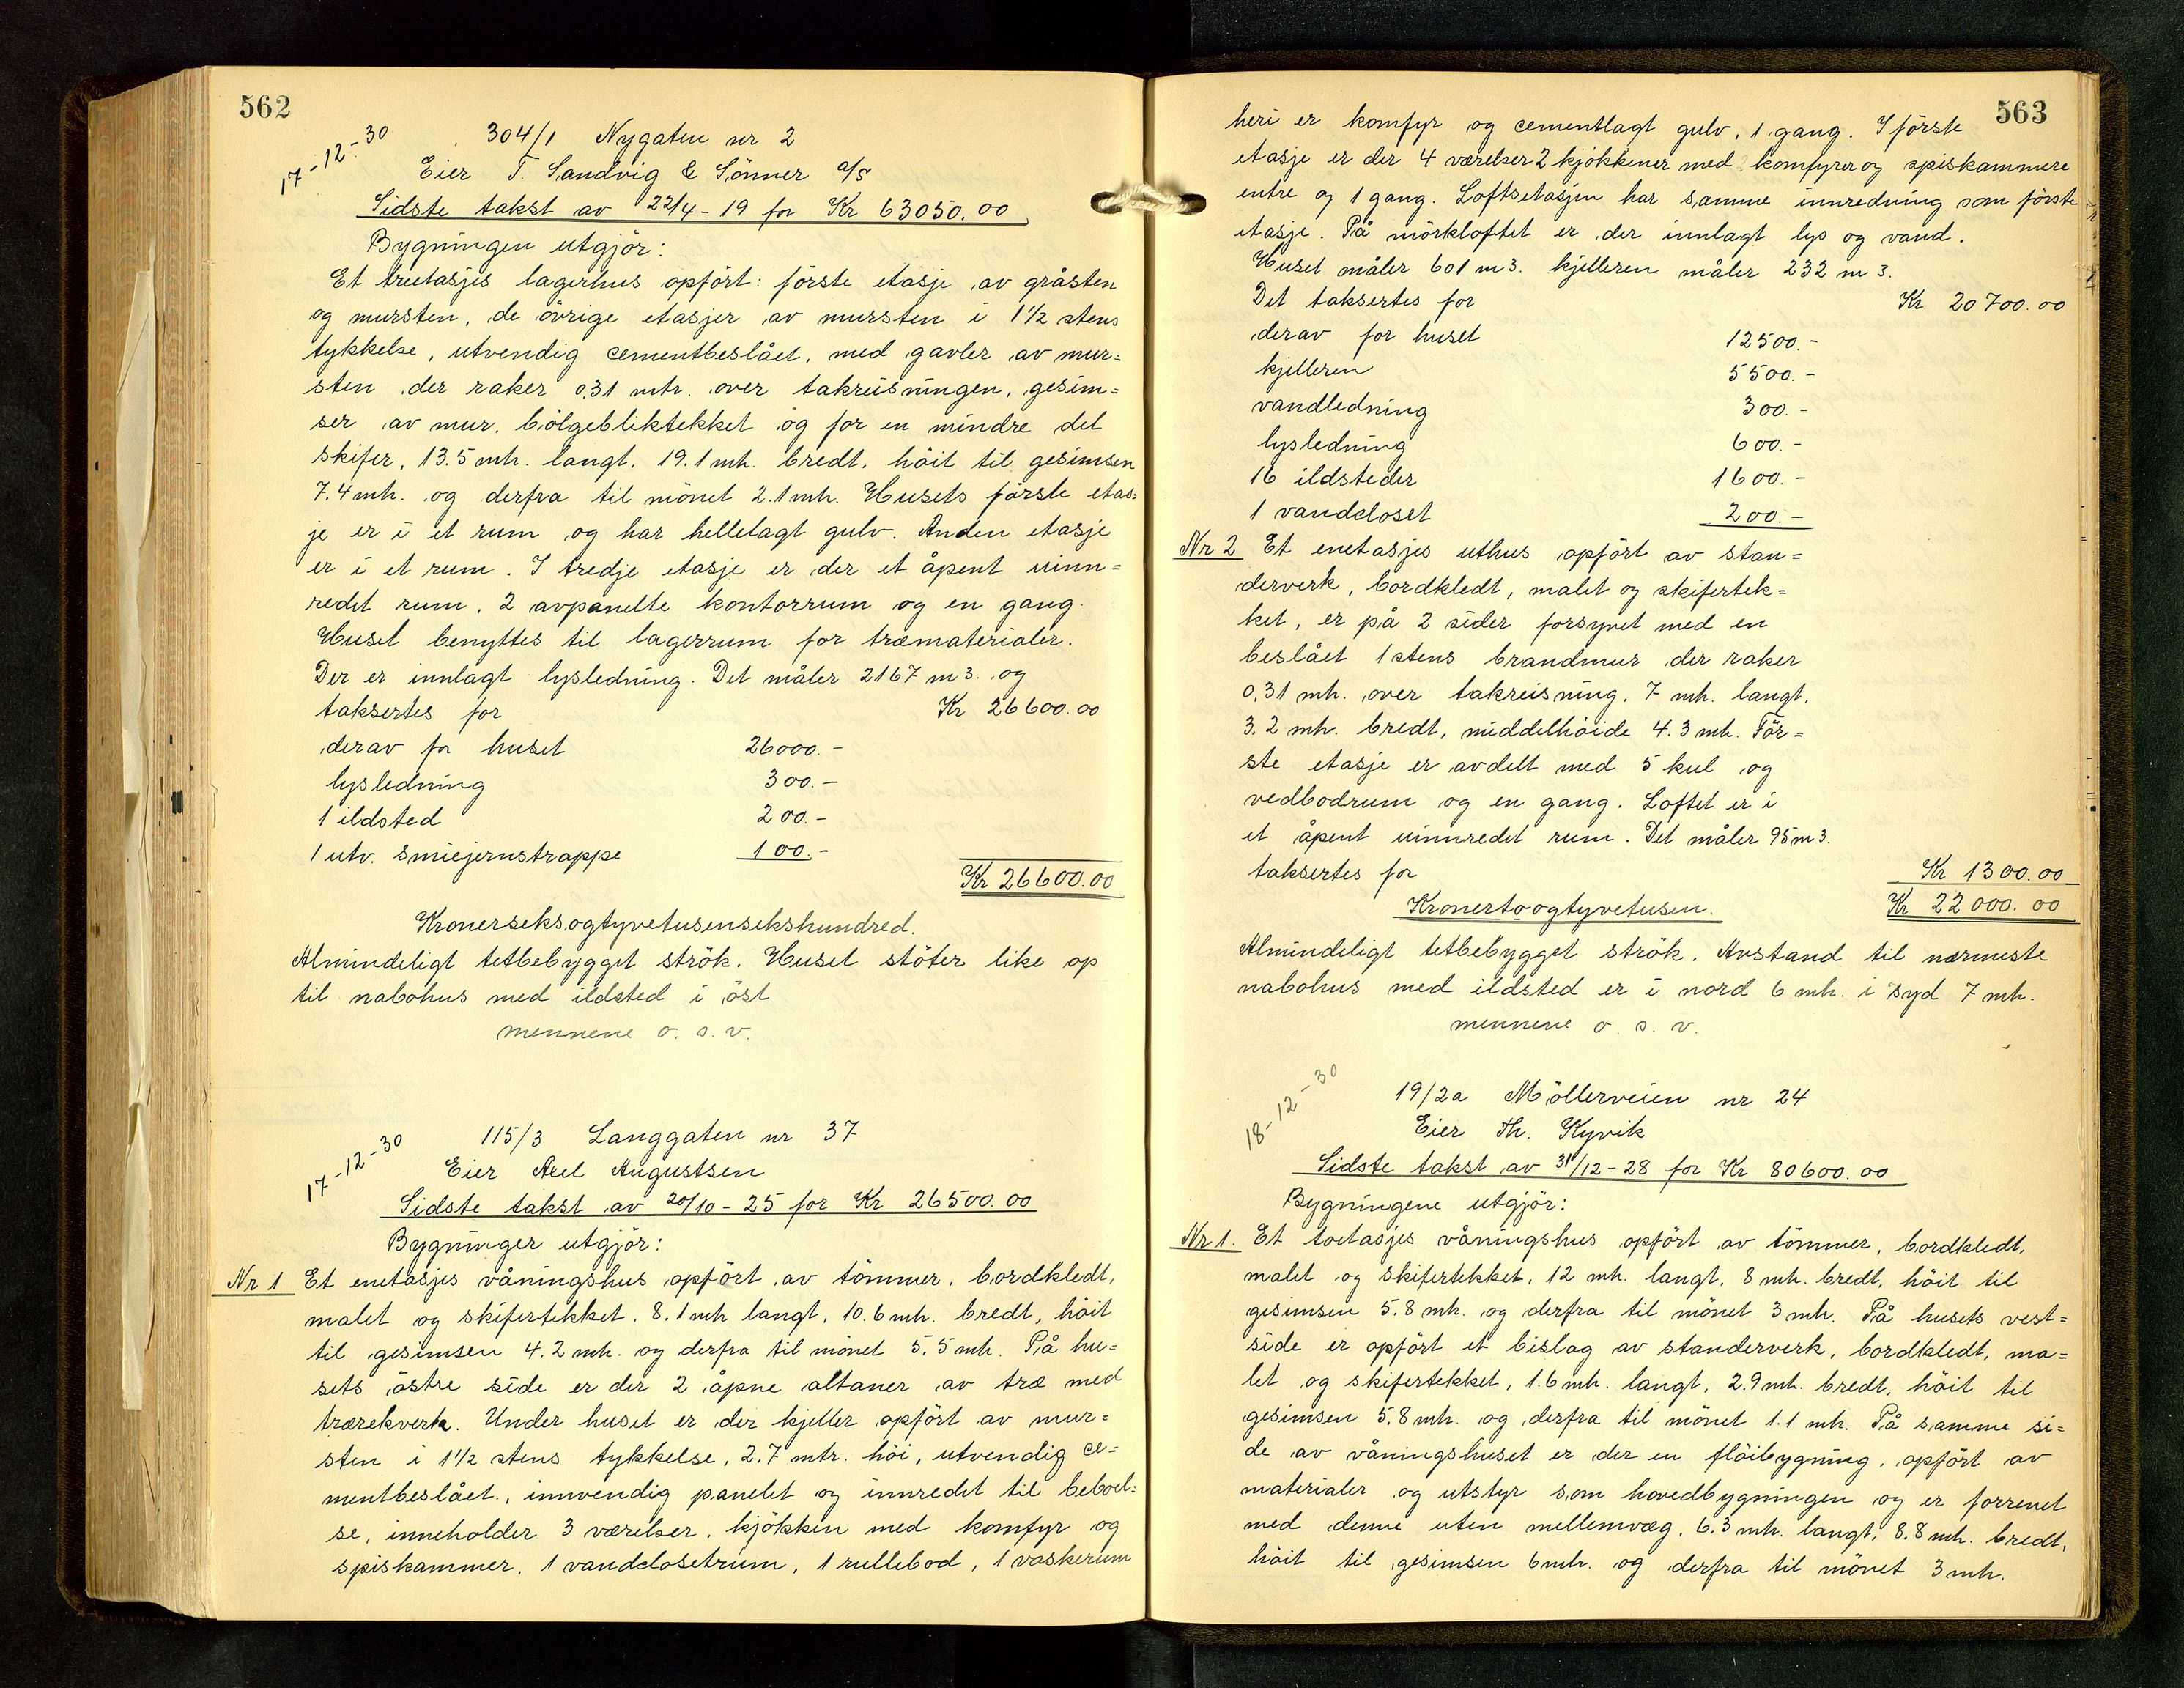 562
17-12-30
304/1 Nygaten nr 2
Eier T. Sandvig & Sönner a/s
Sidste takst av 22/4-19 for Kr 63050.00
Bygningen utgjör:
Et treetasjes lagerhus opfört: förste etasje av gråsten
og mursten, de övrige etasjer av mursten i 1½ stens
tykkelse, utvendig cementbeslået, med gavler av mur=
sten der raker 0.31 mtr. over takreisningen, gesim=
ser av mur. bölgebliktekket og for en mindre del
skifer, 13.5 mtr. langt. 19.1 mtr. bredt. höit til gesimsen
7.4 mtr. og derfra til mönet 2.1 mtr. Husets förste etas=
je er i et rum og har hellelagt gulv. Anden etasje
er i et rum. I tredje etasje er der et åpent uinn=
redet rum, 2 avpanelte kontorrum og en gang.
Huset benyttes til lagerrum for træmaterialer.
Der er innlagt lysledning. Det måler 2167 m3. og
taksertes for Kr 26600.00
derav for huset 26000.-
lysledning 300.-
1 ildsted 200.-
1 utv. smiejernstrappe 100.-
Kr 26600.00
Kronerseksogtyvetusensekshundred.
Almindeligt tetbebygget strök. Huset stöter like op
til nabohus med ildsted i öst
mennene o. s. v.
17-12-30
115/3 Langgaten nr 37
Eier Axel Augustsen
Sidste takst av 20/10-25 for Kr 26500.00
Bygninger utgjör:
Nr 1 Et enetasjes våningshus opfört av tömmer, bordkledt,
malet og skifertekket. 8.1 mtr langt, 10.6 mtr. bredt, höit
til gesimsen 4.2 mtr. og derfra til mönet 5.5 mtr. På hu=
sets östre side er der 2 åpne altaner av træ med
trærekverk. Under huset er der kjeller opfört av mur=
sten i 1½ stens tykkelse, 2.7 mtr. höi, utvendig ce=
mentbeslået, innvendig panelet og innredet til beboel=
se, inneholder 3 værelser, kjökken med komfyr og
spiskammer, 1 vandclosetrum, 1 rullebod, 1 vaskerum
563
heri er komfyr og cementlagt gulv, 1 gang. I förste
etasje er der 4 værelser 2 kjökkener med komfyrer og spiskammere
entre og 1 gang. Loftsetasjen har samme innredning som förste
etasje. På mörkloftet er der innlagt lys og vand.
Huset måler 601 m3. kjelleren måler 232 m3.
Det taksertes for Kr 20700.00
derav for huset 12500.-
kjelleren 5500.-
vandledning 300.-
lysledning 600.-
16 ildsteder 1600.-
1 vandcloset 200.-
Nr 2 Et enetasjes uthus opfört av stan=
derverk, bordkledt, malet og skifertek=
ket, er på 2 sider forsynet med en
beslået 1 stens brandmur der raker
0.31 mtr. over takreisning. 7 mtr. langt,
3.2 mtr. bredt, middelhöide 4.3 mtr. För=
ste etasje er avdelt med 5 kul og
vedbodrum og en gang. Loftet er i
et åpent uinnredet rum. Det måler 95 m3.
taksertes for Kr 1300.00
Kronertoogtyvetusen. Kr 22000.00
Almindeligt tetbebygget strök. Avstand til nærmeste
nabohus med ildsted er i nord 6 mtr. i syd 7 mtr.
mennene o. s. v.
18-12-30
19/2a Möllerveien nr 24
Eier Th. Kyvik
Sidste takst av 31/12-28 for Kr 80600.00
Bygningene utgjör:
Nr 1. Et toetasjes våningshus opfört av tömmer, bordkledt,
malet og skifertekket, 12 mtr. langt, 8 mtr. bredt, höit til
gesimsen 5.8 mtr. og derfra til mönet 3 mtr. På husets vest=
side er opfört et bislag av standerverk, bordkledt, ma=
let og skifertekket, 1.6 mtr. langt, 2.9 mtr. bredt, höit til
gesimsen 5.8 mtr. og derfra til mönet 1.1 mtr. På samme si=
de av våningshuset er der en flöibygning, opfört av
materialer og utstyr som hovedbygningen og er forrenet
med denne uten mellemvæg. 6.3 mtr. langt, 8.8 mtr. bredt,
höit til gesimsen 6 mtr. og derfra til mönet 3 mtr.